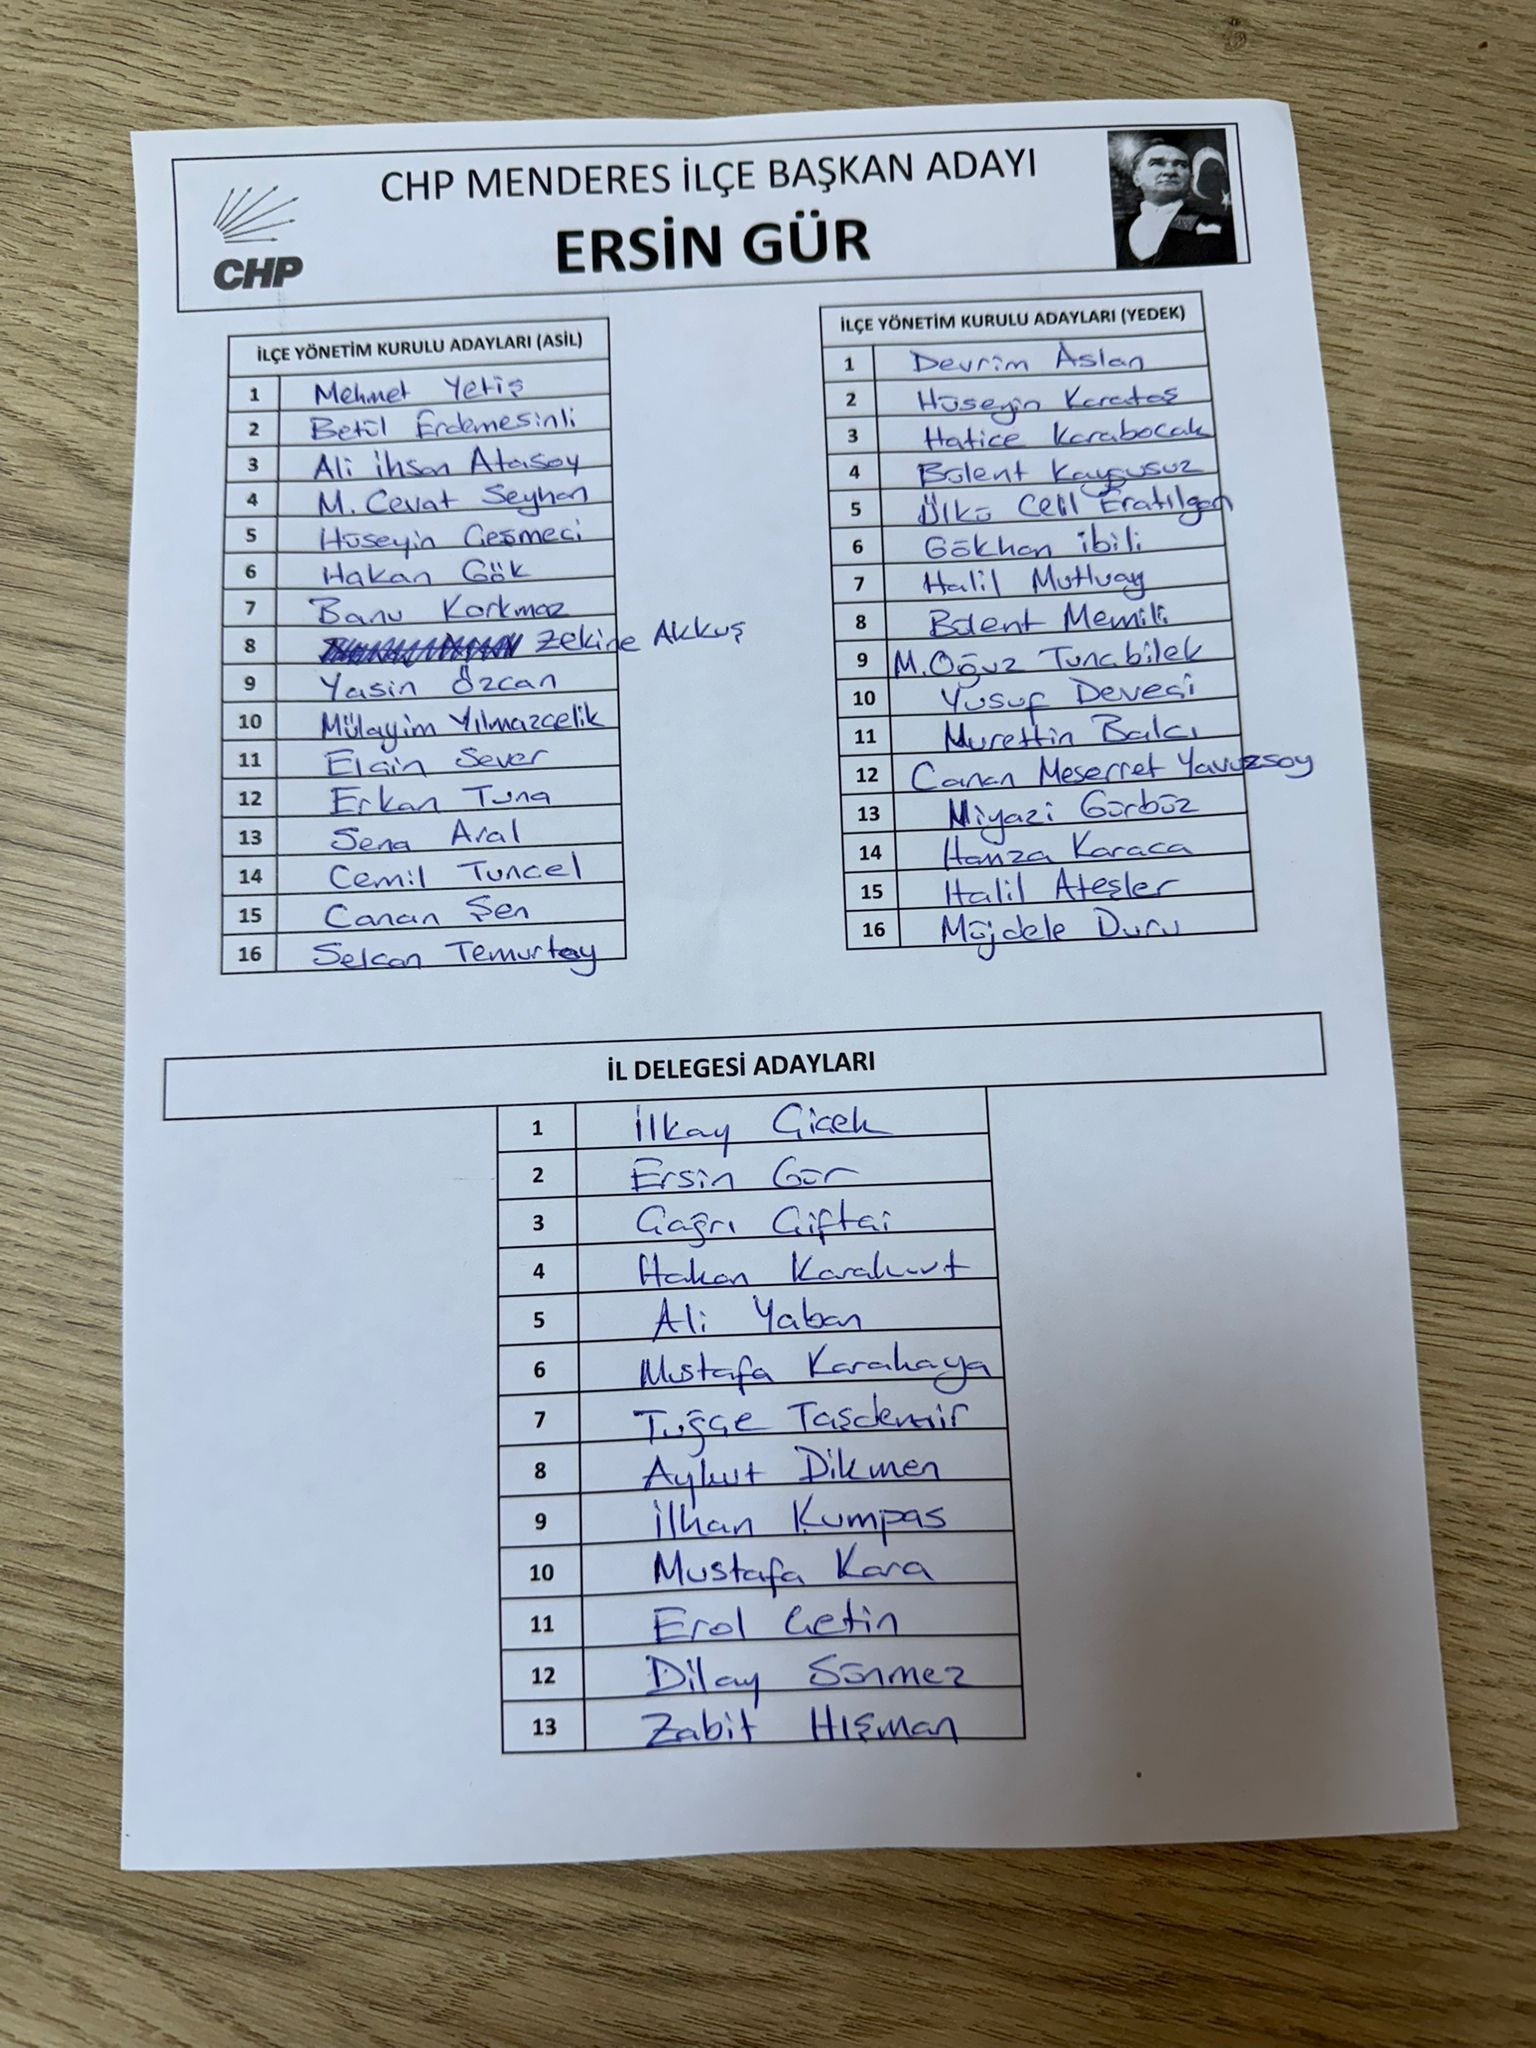 CHP MENDERES İLÇE BAŞKAN ADAYI
ERSİN GÜR
CHP
İLÇE YÖNETİM KURULU ADAYLARI (ASİL)
1 Mehmet Yetiş
2 Betül Erdemesinli
3 Ali ihsan Atasoy
4 M. Cevat Seyhan
5 Hüseyin Çeşmeci
6 Hakan Gök
7 Banu Korkmaz
8 Zekine Akkuş
9 Yasin Özcan
10 Mülayim Yılmazcelik
11 Elçin Sever
12 Erkan Tuna
13 Sena Aral
14 Cemil Tuncel
15 Canan Şen
16 Selcan Temurtay
İLÇE YÖNETİM KURULU ADAYLARI (YEDEK)
1 Devrim Aslan
2 Hüseyin Karataş
3 Hatice Karabocak
4 Bülent Kaygusuz
5 Ülkü Celil Eratılgan
6 Gökhan ibili
7 Halil Mutluay
8 Bülent Memili
9 M. Oğuz Tunabilek
10 Yusuf Deveci
11 Nurettin Balcı
12 Canan Meserret Yavuzsoy
13 Niyazi Gürbüz
14 Hamza Karaca
15 Halil Ateşler
16 Müjdele Duru
İL DELEGESİ ADAYLARI
1 İlkay Çiçek
2 Ersin Gür
3 Çağrı Çiftçi
4 Hakan Karakurt
5 Ali Yaban
6 Mustafa Karakaya
7 Tuğçe Taşdemir
8 Aykut Dikmen
9 İlhan Kumpas
10 Mustafa Kara
11 Erol Çetin
12 Dilay Sönmez
13 Zabit Hışman